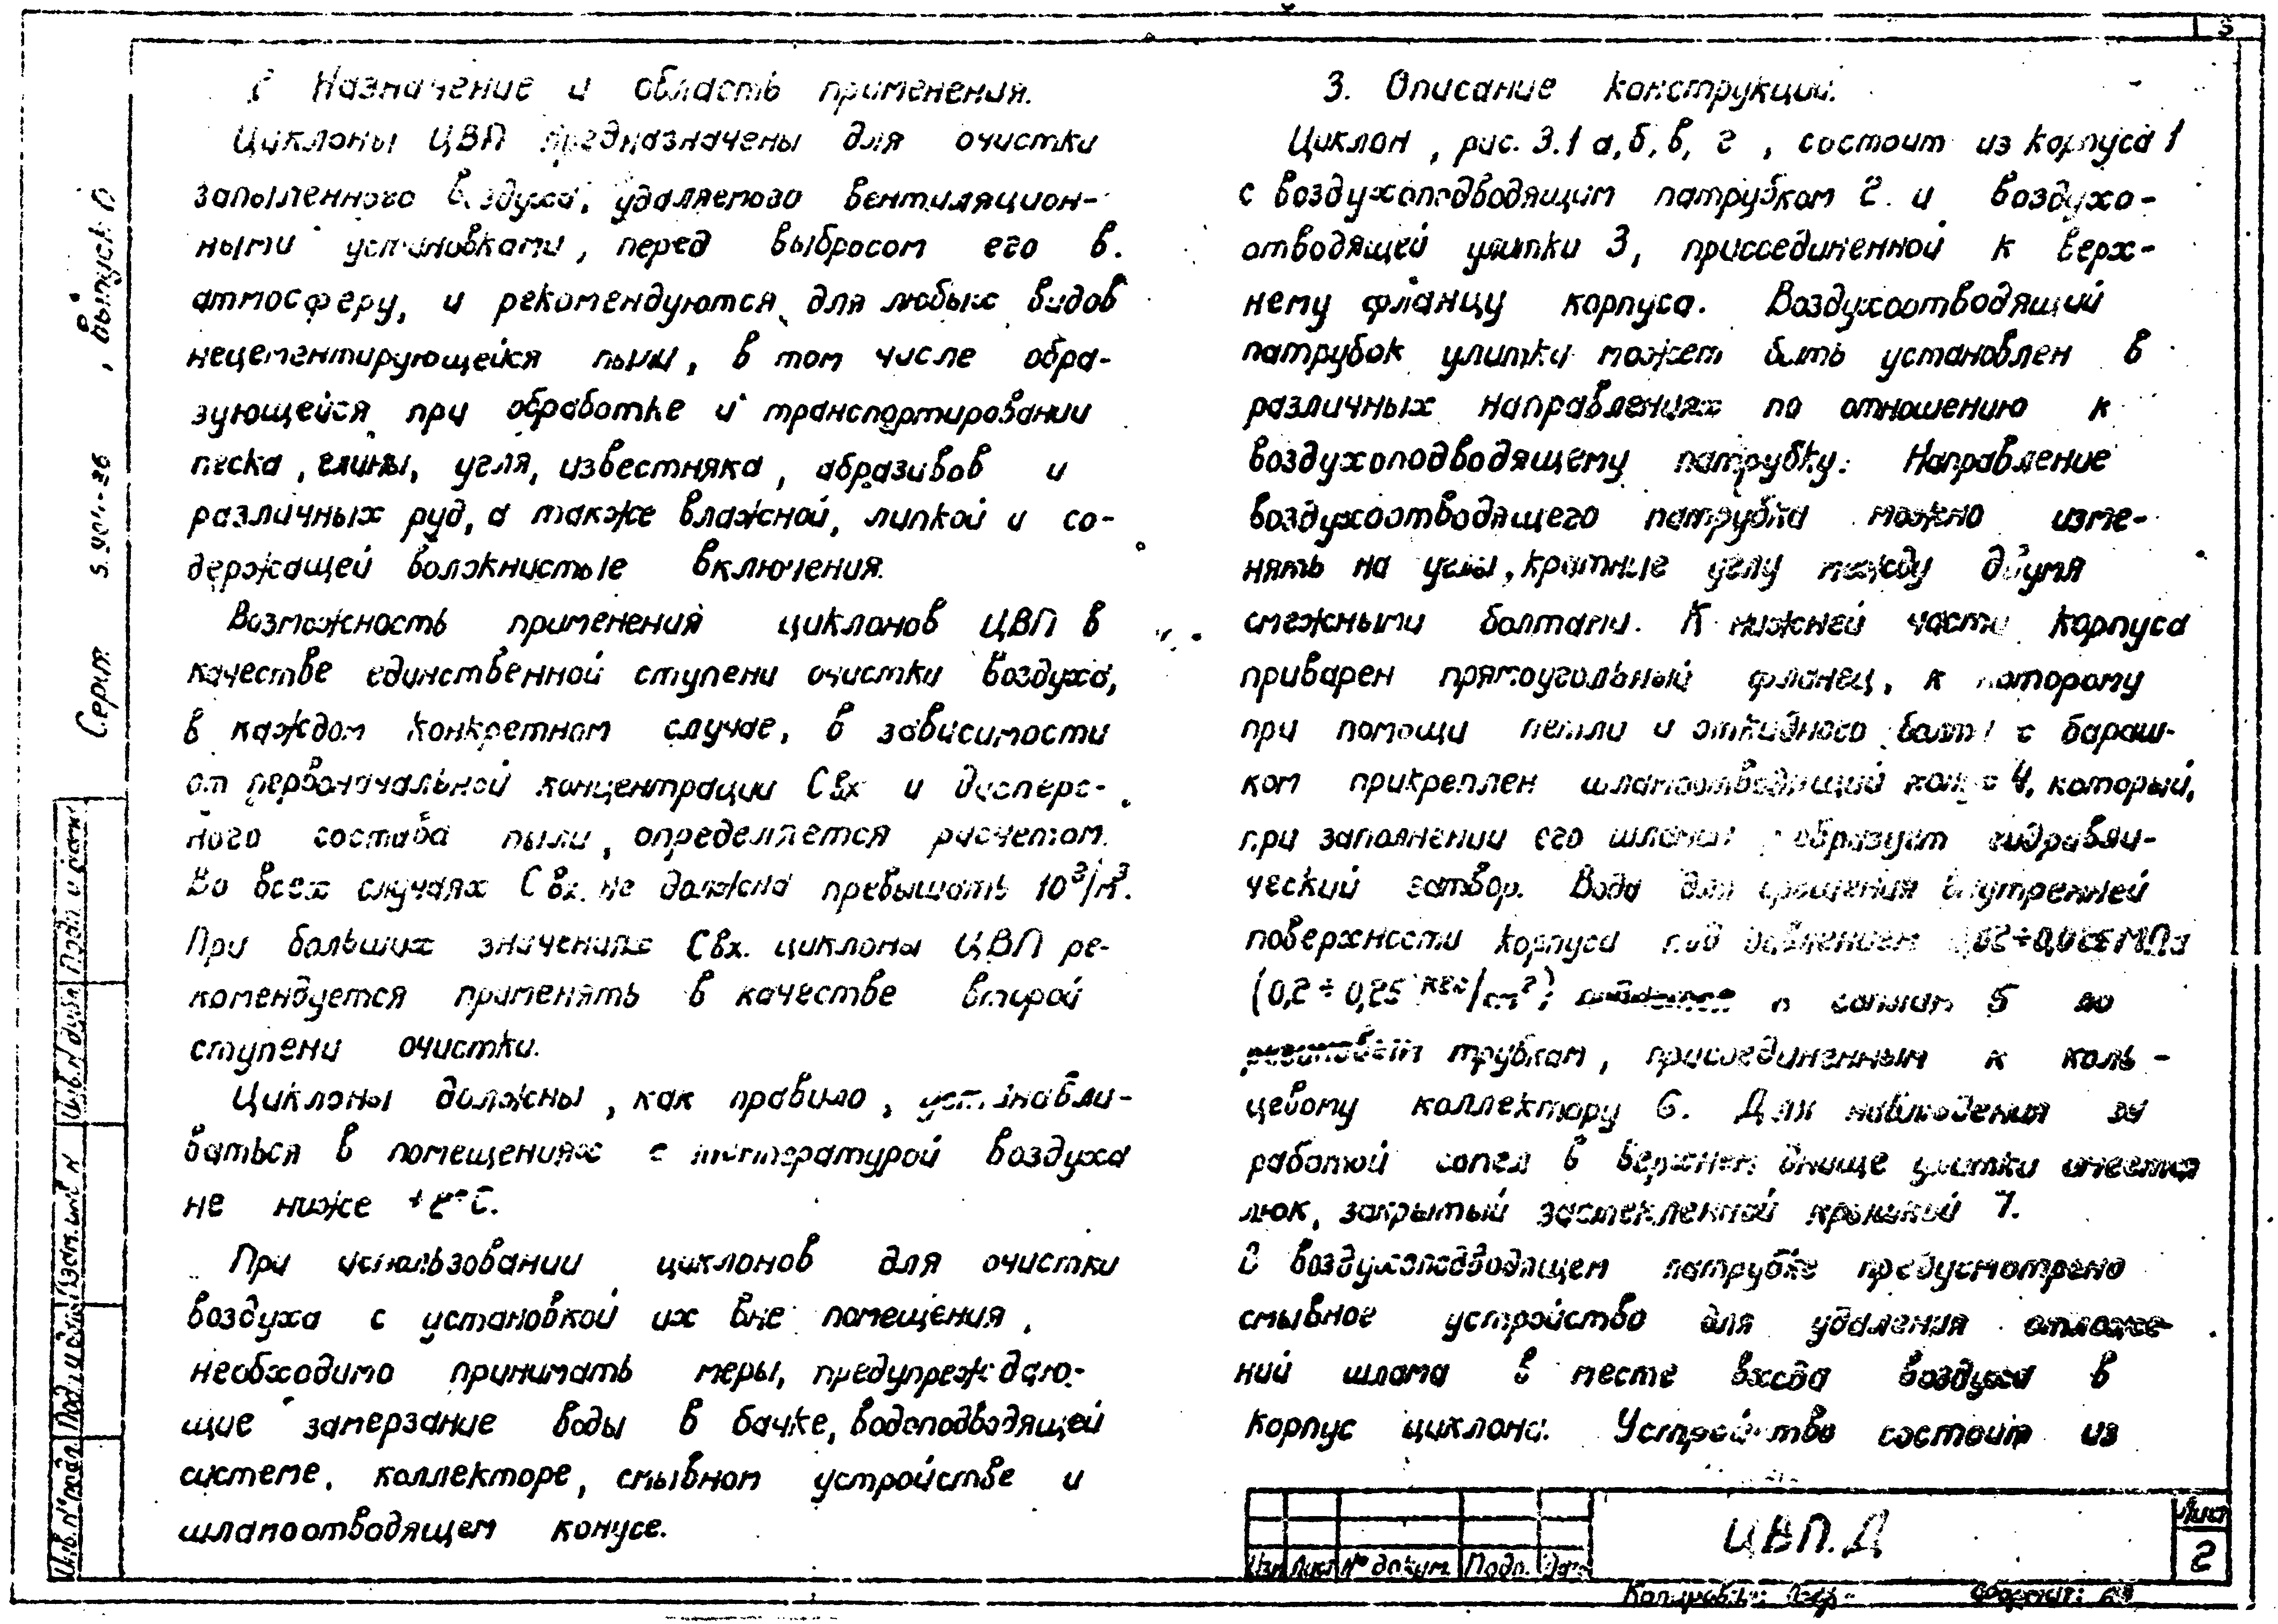 3
2 Назначение и область применения.
Циклоны ЦВП предназначены для очистки
запыленного воздуха, удаляемого вентиляцион-
ными установками, перед выбросом его в
атмосферу, и рекомендуются для любых видов
нецементирующейся пыли, в том числе обра-
зующейся при обработке и транспортировании
песка, глины, угля, известняка, абразивов и
различных руд, а также влажной, липкой и со-
держащей волокнистые включения.
Возможность применения циклонов ЦВП в
качестве единственной ступени очистки воздуха,
в каждом конкретном случае, в зависимости
от первоначальной концентрации Свх и дисперс-
ного состава пыли, определяется расчетом.
Во всех случаях Свх. не должна превышать 10 г/м³.
При больших значениях Свх. циклоны ЦВП ре-
комендуется применять в качестве второй
ступени очистки.
Циклоны должны, как правило, устанавли-
ваться в помещениях с температурой воздуха
не ниже +2°С.
При использовании циклонов для очистки
воздуха с установкой их вне помещения,
необходимо принимать меры, предупреждаю-
щие замерзание воды в бачке, водоподводящей
системе, коллекторе, смывном устройстве и
шламоотводящем конусе.
3. Описание конструкции.
Циклон, рис. 3.1 а, б, в, г, состоит из корпуса 1
с воздухоподводящим патрубком 2 и воздухо-
отводящей улитки 3, присоединенной к верх-
нему фланцу корпуса. Воздухоотводящий
патрубок улитки может быть установлен в
различных направлениях по отношению к
воздухоподводящему патрубку. Направление
воздухоотводящего патрубка можно изме-
нять на углы, кратные углу между двумя
смежными болтами. К нижней части корпуса
приварен прямоугольный фланец, к которому
при помощи петли и откидного болта с бараш-
ком прикреплен шламоотводящий конус 4, который,
при заполнении его шламом, образует гидравли-
ческий затвор. Вода для орошения внутренней
поверхности корпуса под давлением 0,02÷0,025 МПа
(0,2÷0,25 кгс/см²) к соплам 5 по
трубкам, присоединенным к коль-
цевому коллектору 6. Для наблюдения за
работой сопел в верхнем днище улитки имеется
люк, закрытый застекленной крышкой 7.
В воздухоподводящем патрубке предусмотрено
смывное устройство для удаления отложе-
ний шлама в месте входа воздуха в
корпус циклона. Устройство состоит из
Серия 5.904-26, выпуск 0
Инв. № подл. Подп. и дата Взам. инв. № Инв. № дубл. Подп. и дата
Изм Лист № докум. Подп. Дата
ЦВП.Д
Лист
2
Копировал: Формат: А3